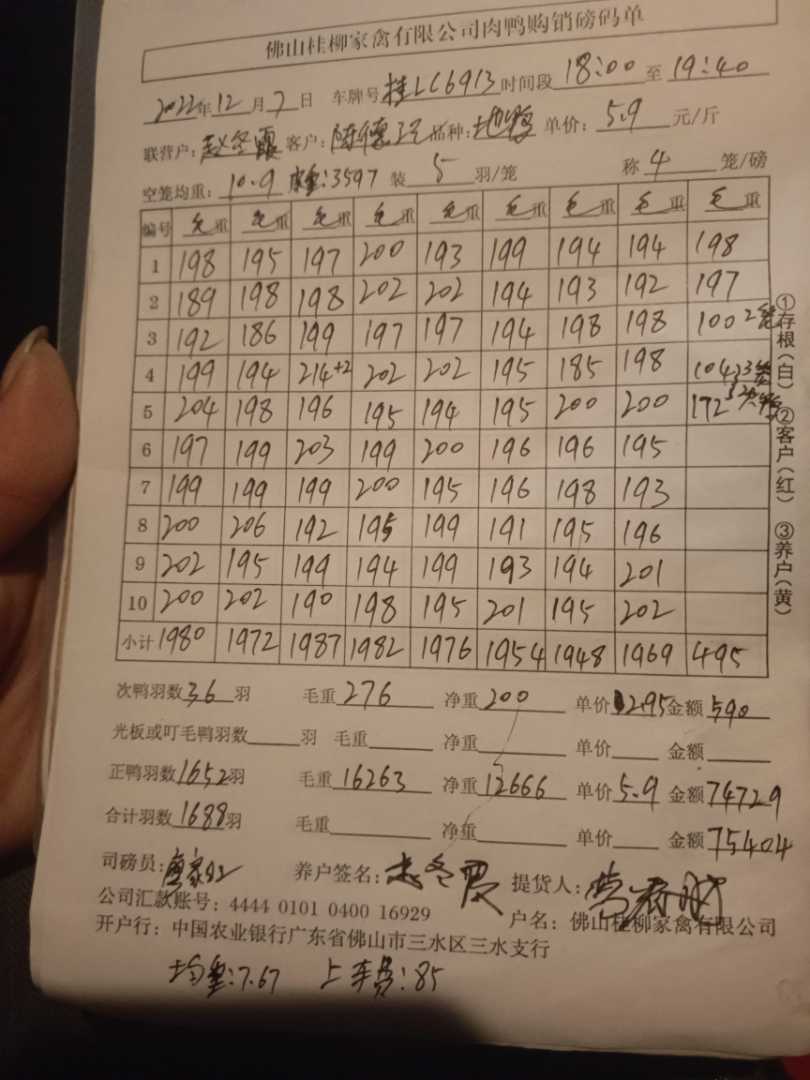 佛山桂柳家禽有限公司肉鸭购销磅码单
2022年12月7日 车牌号桂LC6913时间段18:00至19:40
联营户:赵冬霞 客户:陈德 品种: 单价:5.9元/斤
空笼均重:10.9 :3597 装5羽/笼 称4笼/磅
编号 毛重 毛重 毛重 毛重 毛重 毛重 毛重 毛重 毛重
1 198 195 197 200 193 199 194 194 198
2 189 198 198 202 202 194 193 192 197
3 192 186 199 197 197 194 198 198 100 2笼
4 199 194 214+2 202 202 195 185 198 104
5 204 198 196 195 194 195 200 200 172
6 197 199 203 199 200 196 196 195
7 199 199 199 200 195 196 198 193
8 200 206 192 195 199 191 195 196
9 202 195 199 194 199 193 194 201
10 200 202 190 198 195 201 195 202
小计 1980 1972 1987 1982 1976 1954 1948 1969 495
次鸭羽数36羽 毛重276 净重200 单价2.95金额590
光板或叮毛鸭羽数 羽 毛重 净重 单价 金额
正鸭羽数1652羽 毛重16263 净重12666 单价5.9 金额74729
合计羽数1688羽 毛重 净重 单价 金额75404
司磅员: 养户签名: 提货人:
公司汇款账号:4444 0101 0400 16929 户名:佛山桂柳家禽有限公司
开户行:中国农业银行广东省佛山市三水区三水支行
均重:7.67 上车费:85
①存根(白) ②客户(红) ③养户(黄)